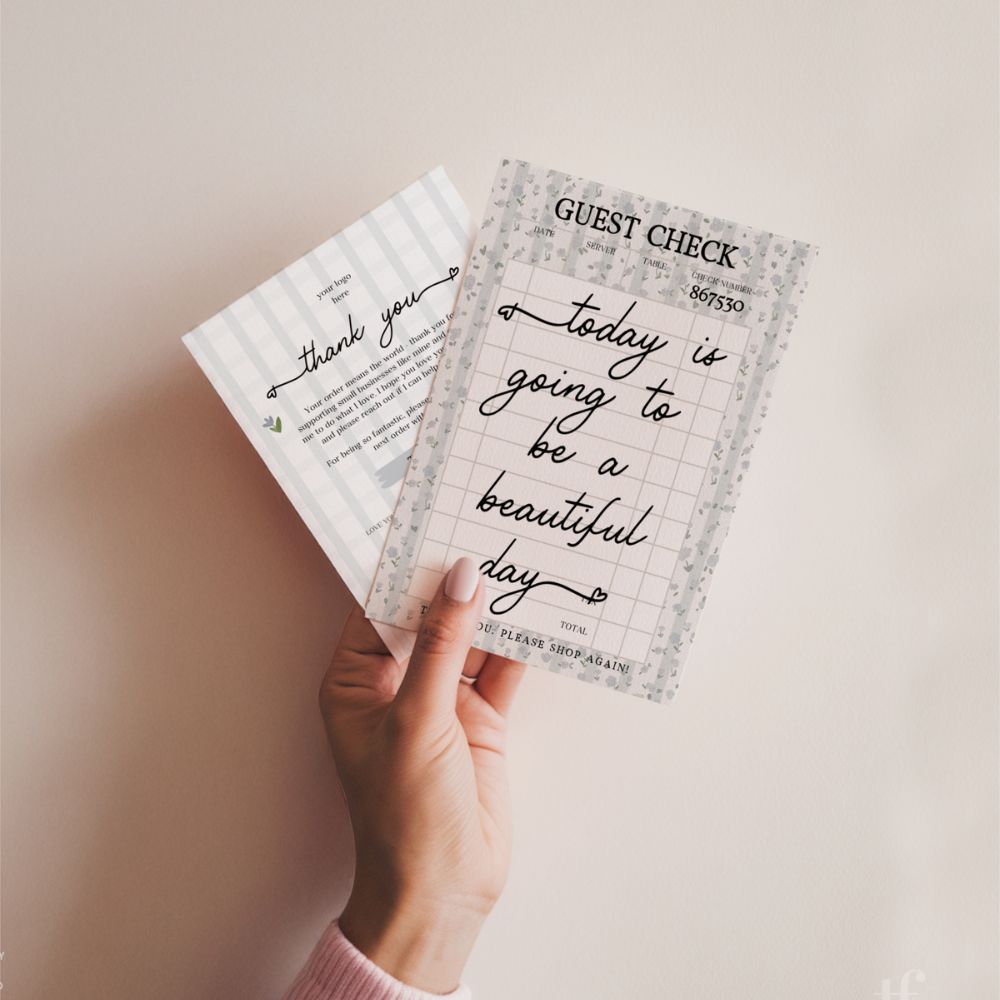 your logo
here
thank you
Your order means the world - thank you
supporting small businesses like mine and
me to do what I love. I hope you love
and please reach out if I can help
For being so fantastic, please
next order
LOVE
GUEST CHECK
DATE SERVER TABLE CHECK NUMBER
867530
today is
going to
be a
beautiful
day
TOTAL
PLEASE SHOP AGAIN!
tf